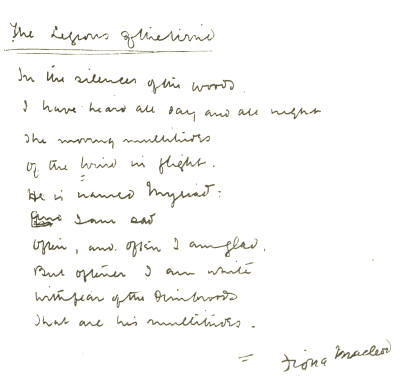 The Legions of the Wind
In the silences of the woods
I have heard all day and all night
The moving multitudes
Of the Wind in flight.
He is named Myriad:
And I am sad
Often, and often I am glad,
But oftener I am white
With fear of the Dim broods
That are his multitudes.
Fiona Macleod